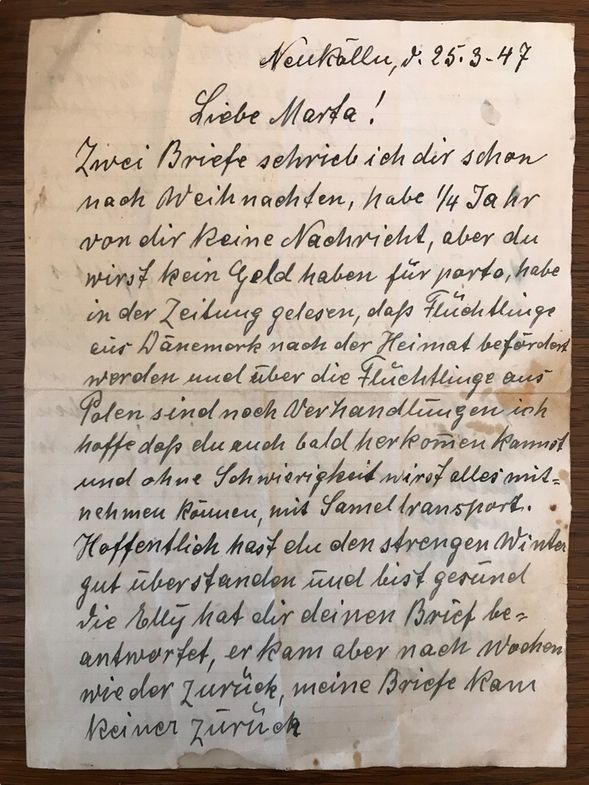 Neukölln, d. 25.3-47
Liebe Marta!
Zwei Briefe schrieb ich dir schon
nach Weihnachten, habe 1/4 Jahr
von dir keine Nachricht, aber du
wirst kein Geld haben für porto, habe
in der Zeitung gelesen, daß Flüchtlinge
aus Dänemark nach der Heimat befördert
werden und über die Flüchtlinge aus
Polen sind noch Verhandlungen ich
hoffe daß du auch bald herkom̅en kannst
und ohne Schwierigkeit wirst alles mit=
nehmen können, mit Sameltransport.
Hoffentlich hast du den strengen Winter
gut überstanden und bist gesund
die Elly hat dir deinen Brief be=
antwortet, er kam aber nach Wochen
wieder zurück, meine Briefe kam
keiner zurück